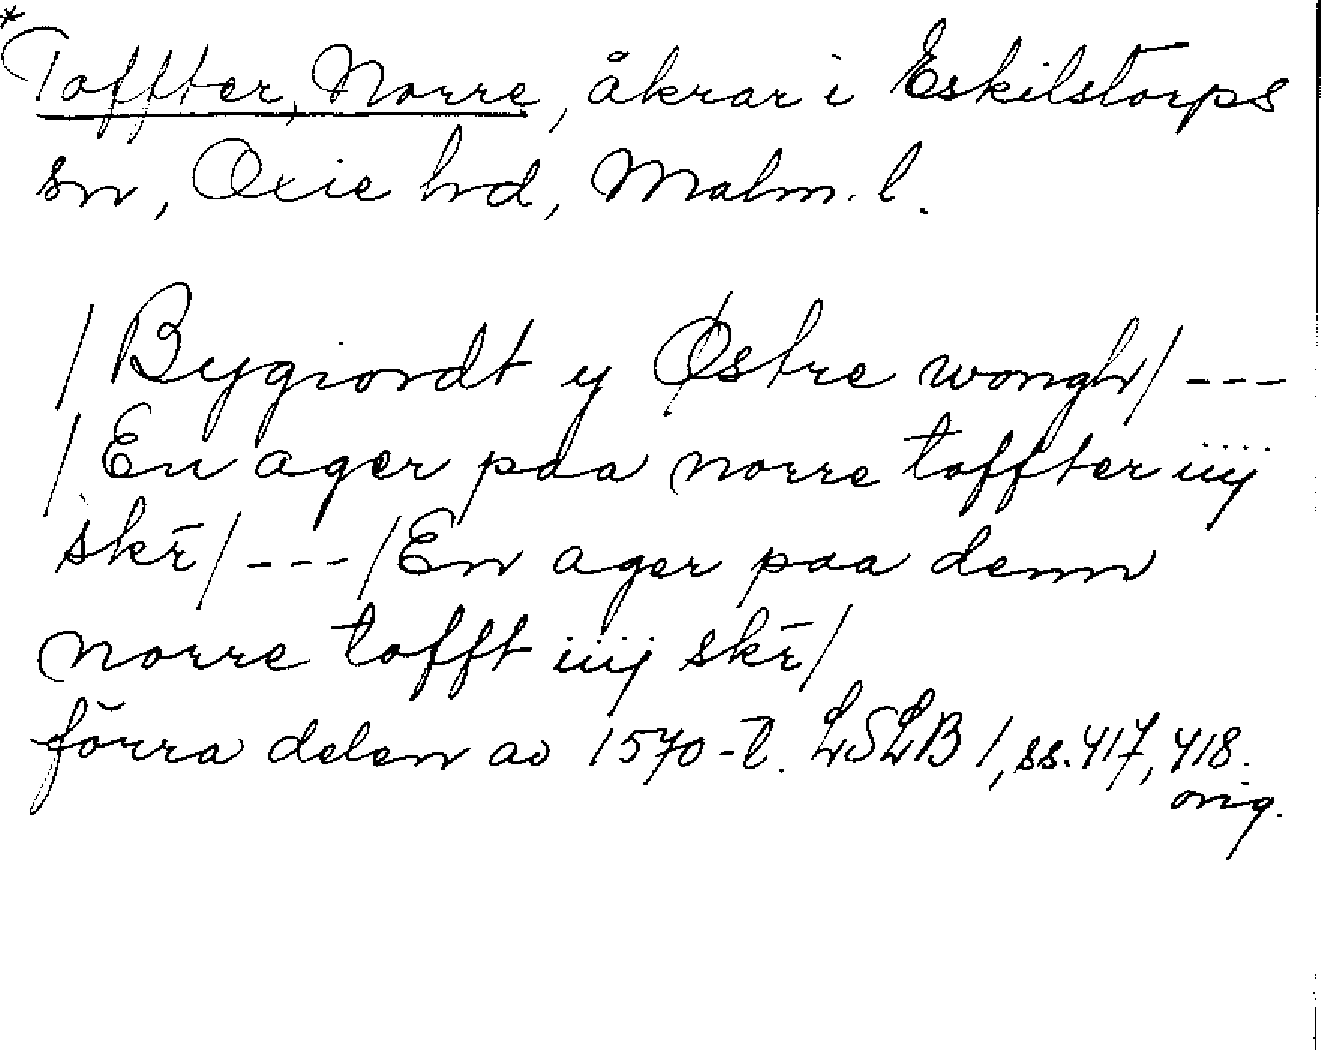 *Toffter, Norre, åkrar i Eskilstorps
sn, Oxie hd, Malm. l.
/Bygiordt y Østre wongh/ ---
/En ager paa norre toffter iiij
skr̄/ --- /En ager paa denn
norre tofft iiij skr̄/
förra delen av 1570-t. LSLB 1, ss. 417, 418.
orig.